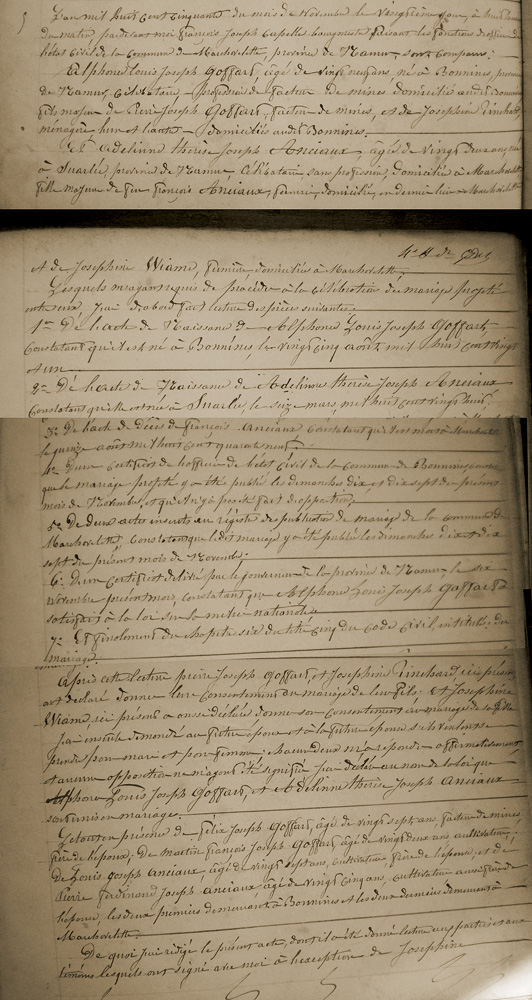 L'an mil huit cent cinquante du mois de Novembre le vingtième jour, à huit heures
du matin pardevant moi François Joseph Capelle bourgmestre faisant les fonctions d'officier de
l'état Civil de la Commune de Marchovelette, province de Namur, sont comparus:
Alphonse Louis Joseph Goffart, âgé de vingt neuf ans, né à Bonnines, province
de Namur, Célibataire, profession de facteur de mines, domicilié audit Bonnines
fils majeur de Pierre Joseph Goffart, facteur de mines, et de Josephine Pinchart
ménagère, domiciliés audit Bonnines.
Et Adelinne thérèse Joseph Anciaux, âgée de vingt deux ans, née
à Suarlée, province de Namur, Célibataire, sans profession, domiciliée à Marchovelette
fille majeure de feu François Anciaux, fermier, domicilié, en dernier lieu à Marchovelette
4e
et de Josephine Wiame, fermière, domiciliée à Marchovelette,
Lesquels m'ayant requis de procéder à la célébration du mariage projeté
entre eux, j'ai d'abord fait lecture des pièces suivantes:
1o De l'acte de Naissance de Alphonse Louis Joseph Goffart,
Constatant qu'il est né à Bonnines, le vingt cinq août mil huit cent vingt
et un.
2o De l'acte de Naissance de Adelinne thérèse Joseph Anciaux
Constatant qu'elle est née à Suarlée, le seize mars, mil huit cent vingt
3o De l'acte de décès de François Anciaux Constatant qu'il est mort à Marchovelette
le quinze août mil huit cent quarante neuf;
4o D'un certificat de l'officier de l'état Civil de la Commune de Bonnines
que le mariage projeté y a été publié les dimanches dix et dix sept du présent
mois de Novembre, et qu'il n'y a pas été fait d'opposition,
5o De deux actes inscrits au régistre des publications de mariage de la commune de
Marchovelette, Constatant que ledit mariage y a été publié les dimanches dix et dix
sept du présent mois de Novembre;
6o D'un certificat délivré par le gouverneur de la province de Namur, le six
novembre présent mois, constatant que Alphonse Louis Joseph Goffart a
satisfait à la loi sur la milice nationale;
7o Et finalement du chapitre six du titre cinq du Code Civil, intitulé: du
mariage.
Après cette lecture pierre Joseph Goffart, et Josephine Pinchard, ici présents
ont déclaré donner leur consentement au mariage de leur fils, et Josephine
Wiame, ici présente a aussi déclaré donner son consentement au mariage de sa fille
J'ai ensuite demandé au futur époux et à la future épouse s'ils veulent se
prendre pour mari et pour femme: chacun d'eux m'a répondu affirmativement
et aucune opposition ne m'ayant été signifiée j'ai déclaré au nom de la loi que
Alphonse Louis Joseph Goffart, et Adelinne thérèse Joseph Anciaux
sont unis en mariage.
Le tout en présence de Felix Joseph Goffart, âgé de vingt sept ans, facteur de mines,
frère de l'époux; De Martin François Joseph Goffart, âgé de vingt deux ans cultivateur,
De Louis Joseph Anciaux, âgé de vingt sept ans, cultivateur frère de l'épouse, et de
Pierre Ferdinand Joseph Anciaux âgé de vingt cinq ans, cultivateur aussi frère de
l'épouse, les deux premiers demeurant à Bonnines et les deux derniers demeurant à
Marchovelette.
De quoi j'ai rédigé le présent acte, dont il a été donné lecture aux parties et aux
témoins lesquels ont signé avec moi à l'exception de Josephine